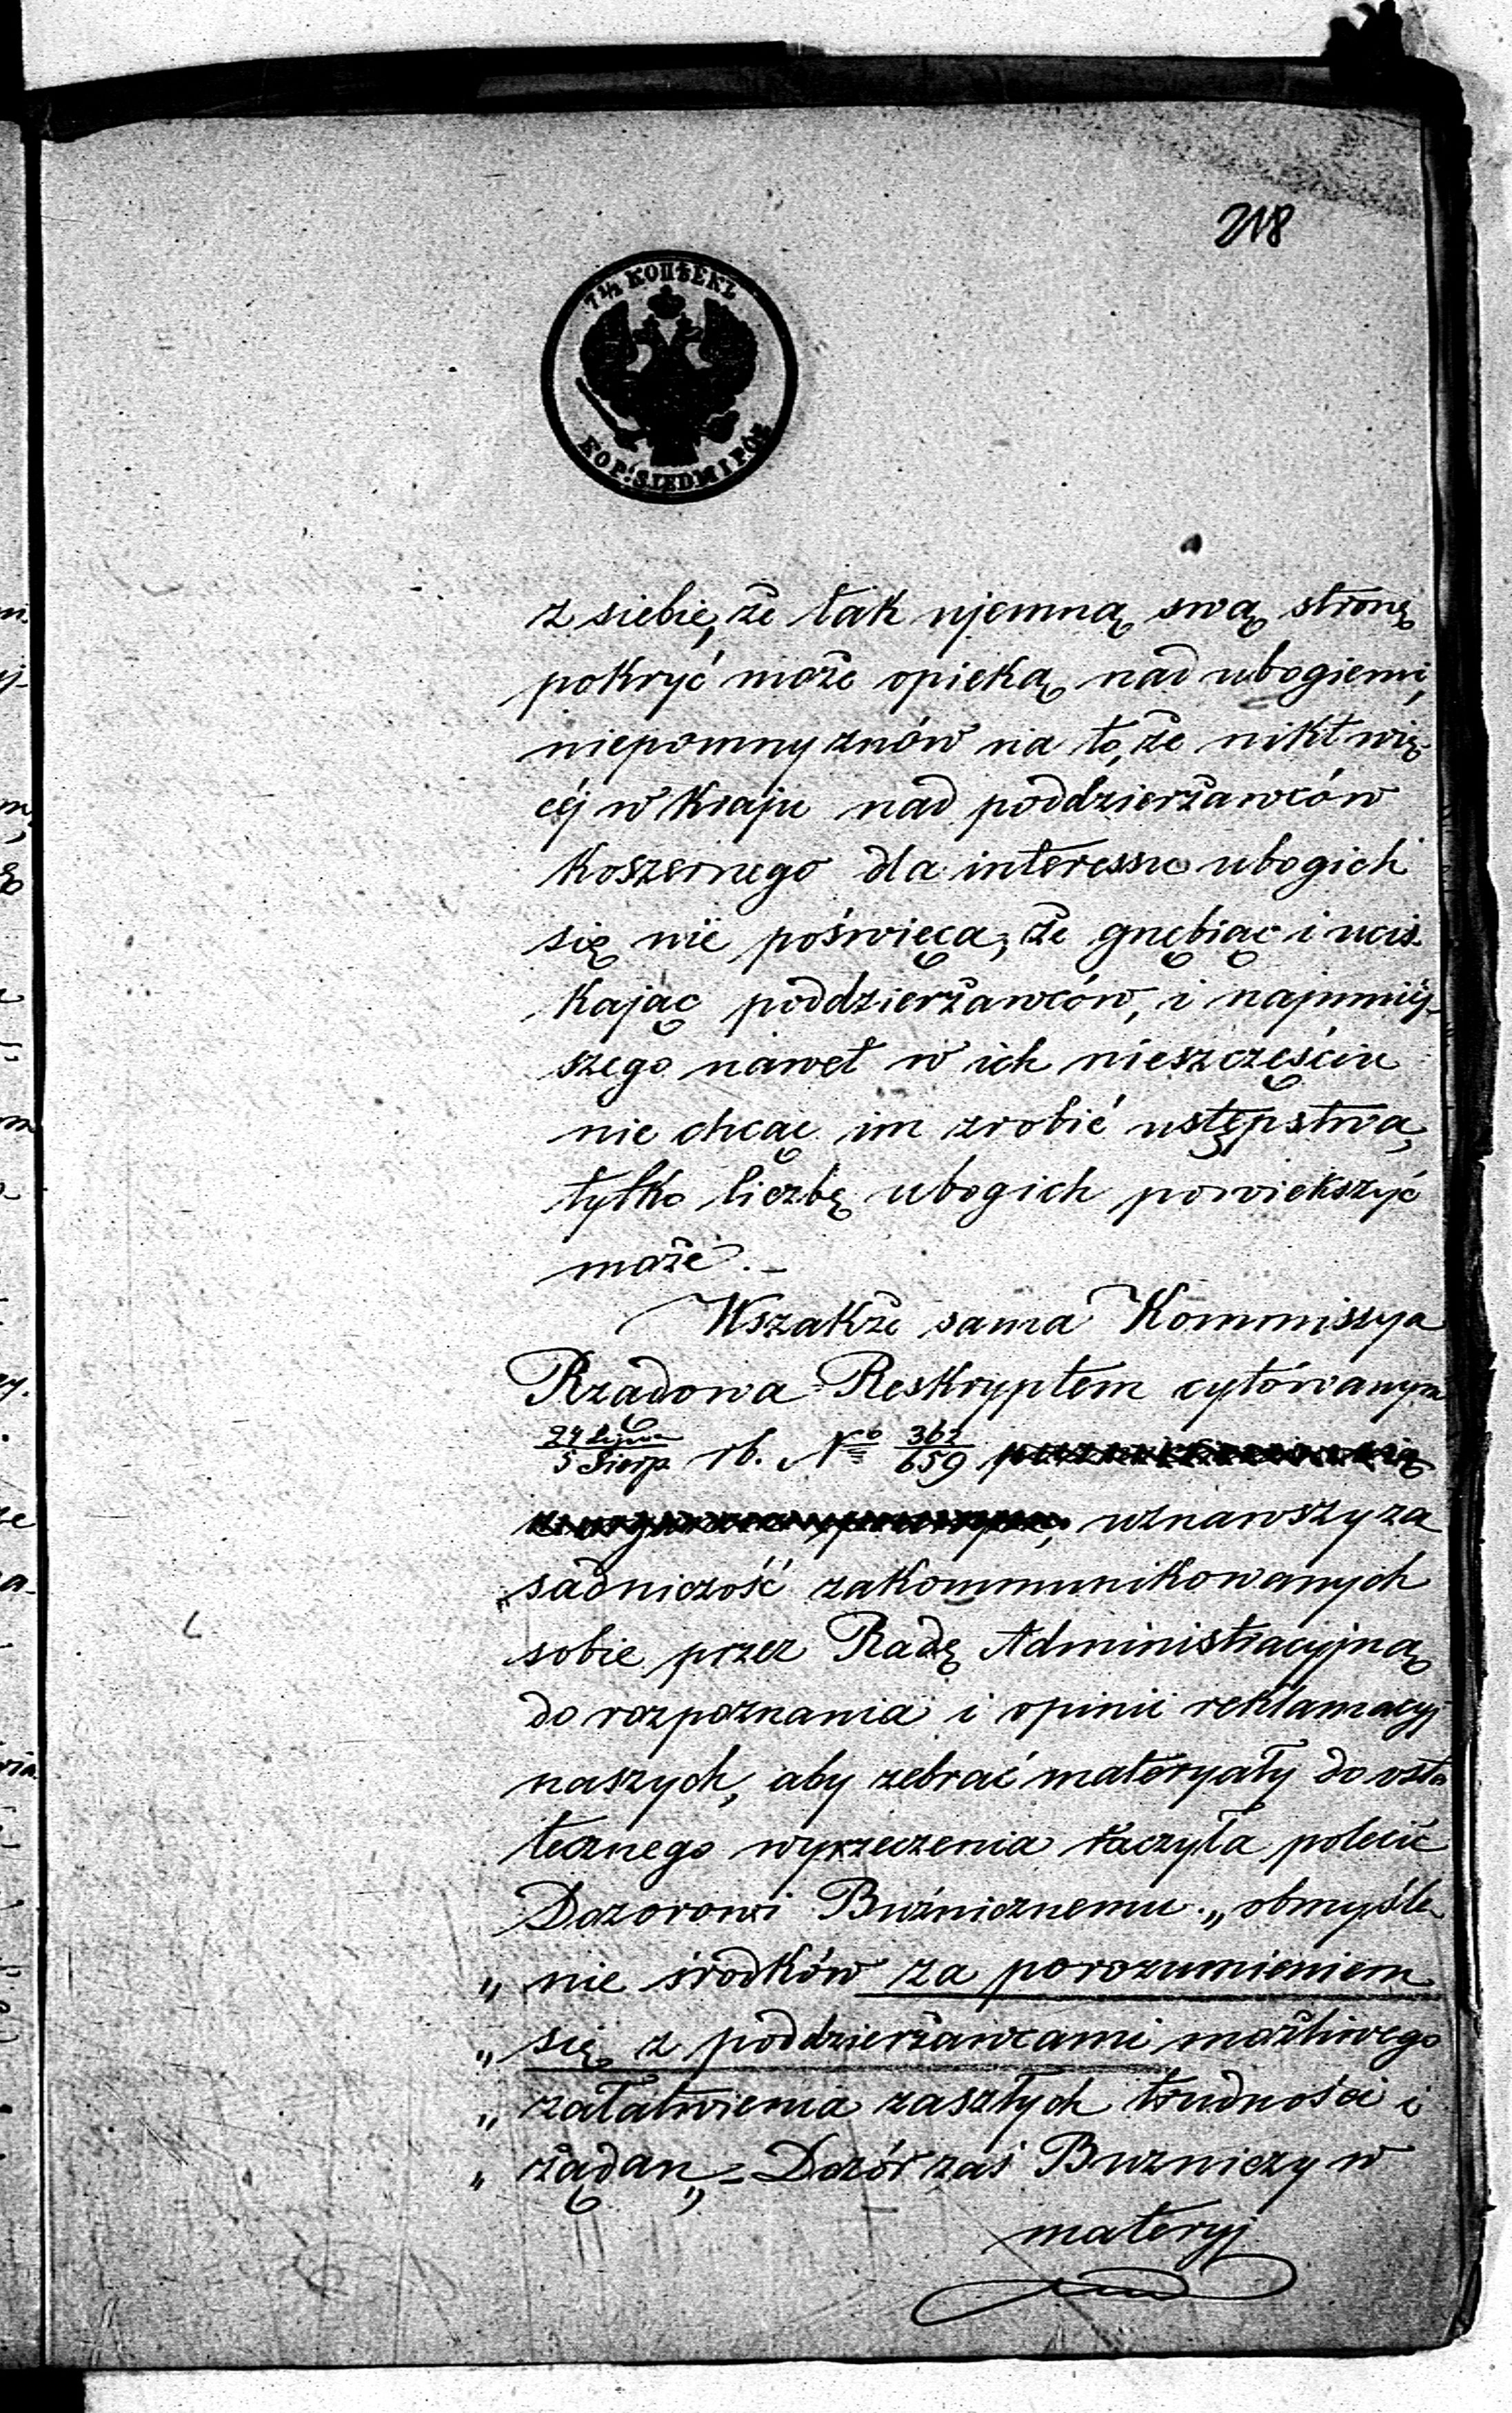 218
7½ КОПѢЕКЪ
KOP: SIEDM I PÓŁ
z siebie, że tak ujemną swą stronę
pokryć może opieką nad ubogiemi,
niepomny znów na to, że nikt wię-
céj w Kraju nad poddzierżawców
Koszernego dla interessu ubogich
się nie poświęca, że gnębiąc i ucis-
kając poddzierżawców, i najmniéj-
szego nawet w ich nieszczęściu
nie chcąc im zrobić ustępstwa,
tylko liczbę ubogich powiekszyć
może.–
Wszakże sama Kommissya
Rządowa Reskryptem cytówanym
24 Lipca / 5 Sierp. rb. No 362/659
uznawszy za
sadniczość zakommunikowanych
sobie przez Radę Administracyjną
do rozpoznania i opinii reklamacyj
naszych, aby zebrać materyały do osta
tecznego wyrzeczenia raczyła polecić
Dozorowi Bużnicznemu „obmyśle
„ nie środków za porozumieniem
„ się z poddzierżawcami możliwego
„ załatwienia zaszłych trudności i
„ żądan„ – Dozór zaś Bużniczy w
materyj